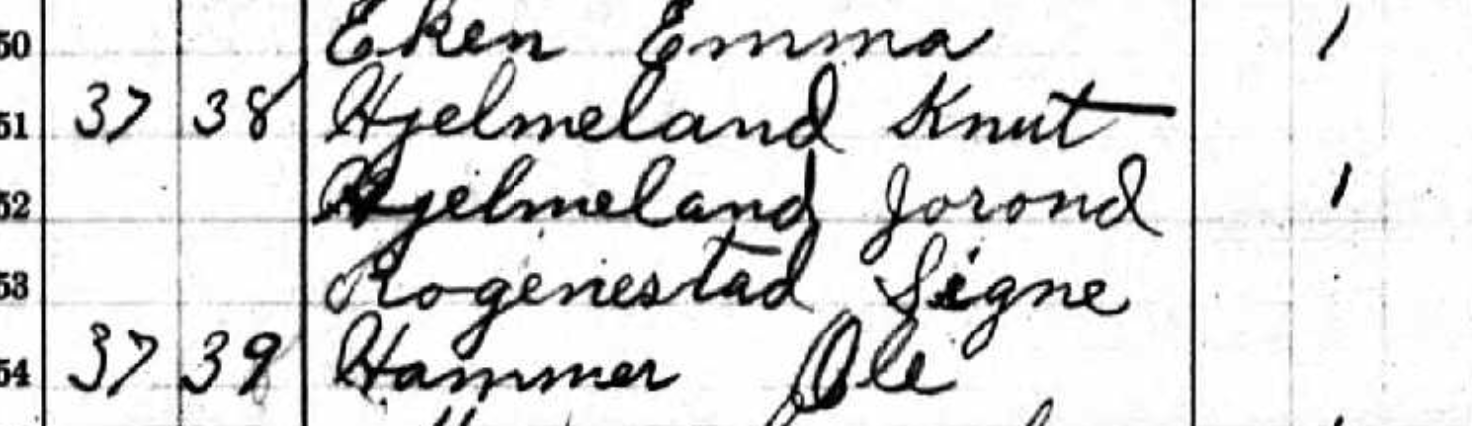 50 Eken Emma 1
51 37 38 Hjelmeland Knut
52 Hjelmeland Jorond 1
53 Rogenestad Signe
54 37 39 Hammer Ole